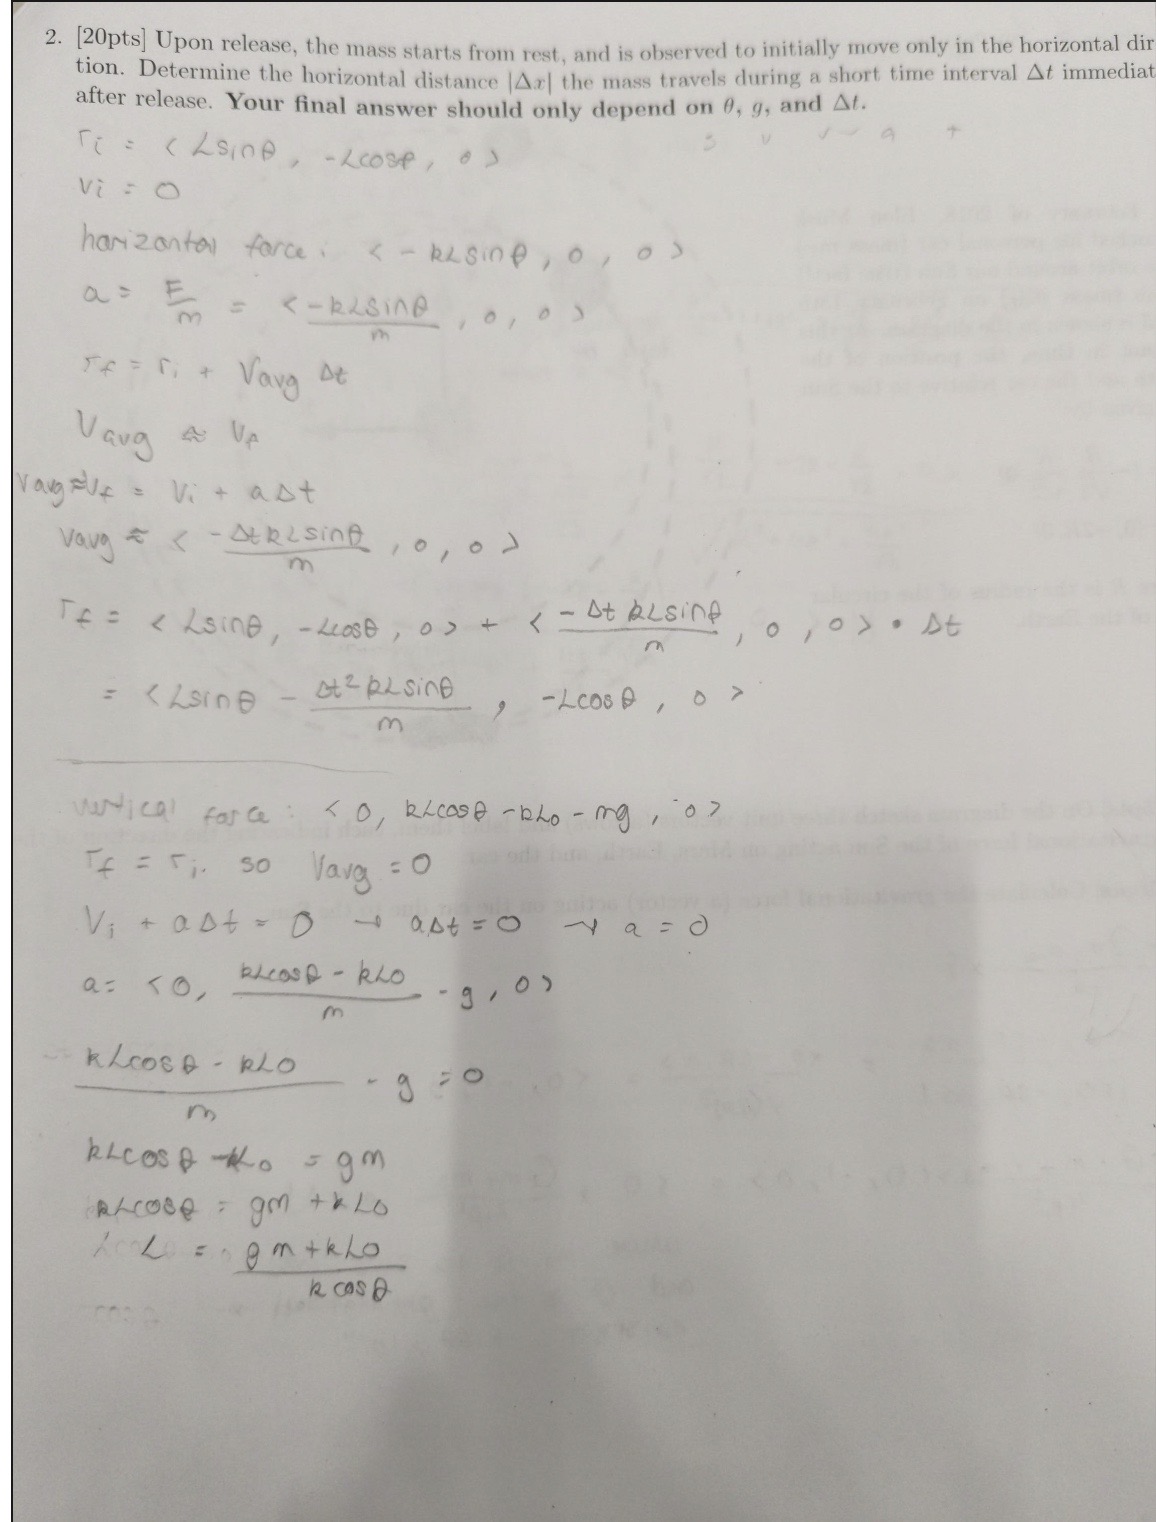 2. [20pts] Upon release, the mass starts from rest, and is observed to initially move only in the horizontal dir
tion. Determine the horizontal distance |Δx| the mass travels during a short time interval Δt immediat
after release. Your final answer should only depend on θ, g, and Δt.
ri = < Lsinθ, -Lcosθ, 0 >
vi = 0
horizontal force: < -kLsinθ, 0, 0 >
a = F/m = < -kLsinθ/m, 0, 0 >
rf = ri + Vavg Δt
Vavg ≈ Vf
Vavg≈Vf = Vi + aΔt
Vavg ≈ < -ΔtkLsinθ/m, 0, 0 >
rf = < Lsinθ, -Lcosθ, 0 > + < -Δt kLsinθ/m, 0, 0 > • Δt
= < Lsinθ - Δt²kLsinθ/m, -Lcosθ, 0 >
vertical force: < 0, kLcosθ - kL0 - mg, 0 >
rf = ri. so Vavg = 0
Vi + aΔt = 0 → aΔt = 0 → a = 0
a = < 0, kLcosθ - kL0/m - g, 0 >
kLcosθ - kL0/m - g = 0
kLcosθ - kL0 = gm
kLcosθ = gm + kL0
L = gm + kL0/k cosθ